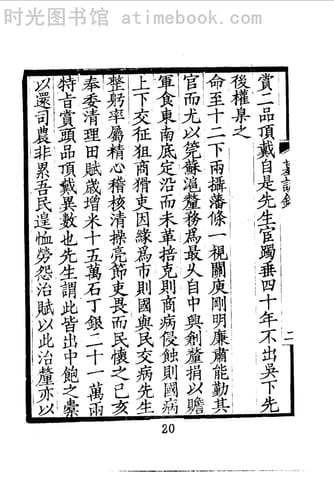 时光图书馆 www.atimebook.com
賞二品頂戴自是先生宦蠲垂四十年不出吳下先
後權臬之
命至十二下兩攝藩條一視關庾剛明廉肅能勤其
官而尤以筦蘇滬釐務為最久自中興創釐捐以贍
軍食東南底定沿而未革掊克則商病侵蝕則國病
上下交征狙商猾吏因緣為市則國與民交病先生
整躬率屬精心稽核清操亮節吏畏而民懷之己亥
奉委清理田賦歲增米十五萬石丁銀二十一萬兩
特旨賞頭品頂戴異數也先生謂此皆出中飽之橐
以還司農非累吾民遑恤勞怨治賦以此治釐亦以
二
20
时光图书馆 www.atimebook.com